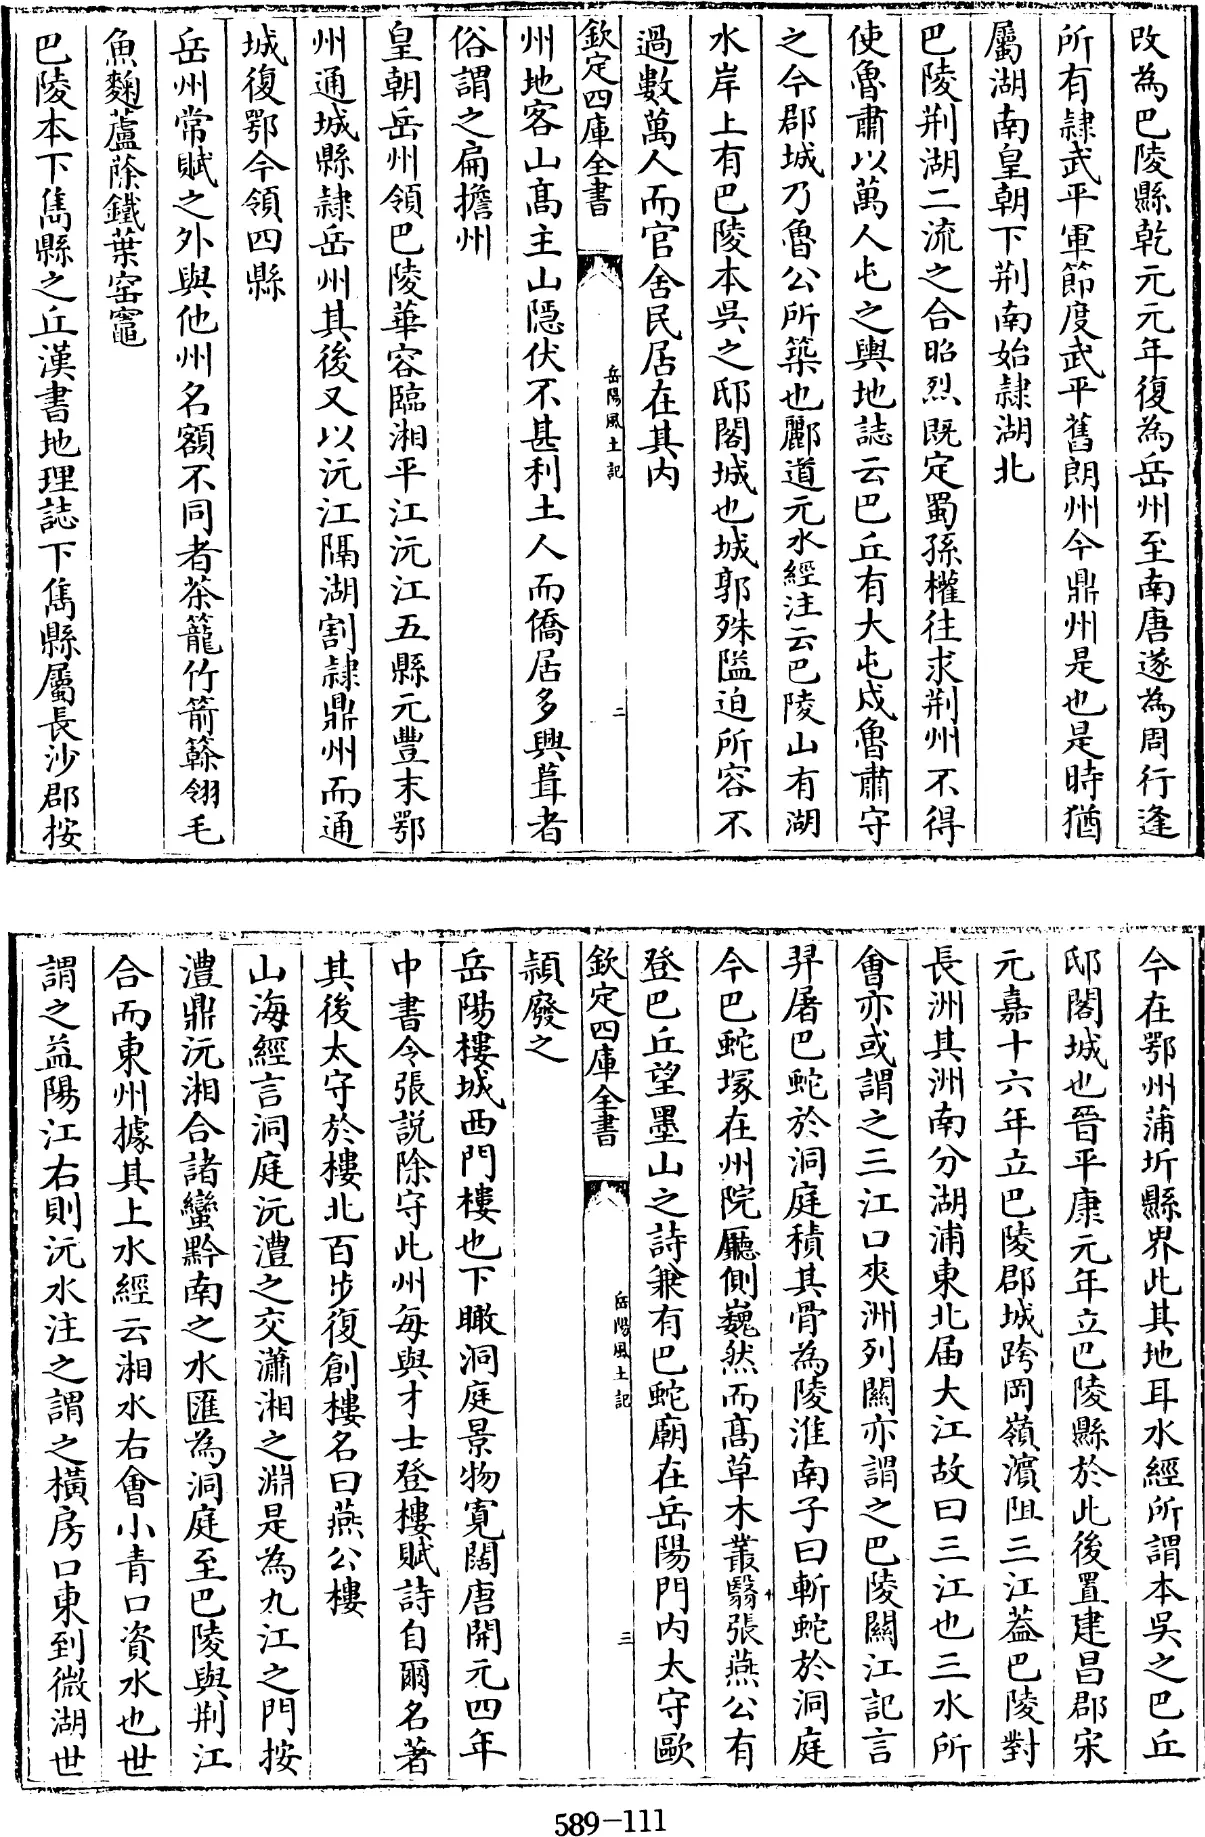 改為巴陵縣乾元元年復為岳州至南唐遂為周行逢
所有隷武平軍節度武平舊朗州今鼎州是也是時猶
屬湖南皇朝下荆南始隷湖北
巴陵荆湖二流之合昭烈既定蜀孫權往求荆州不得
使魯肅以萬人屯之輿地誌云巴丘有大屯戍魯肅守
之今郡城乃魯公所築也酈道元水經注云巴陵山有湖
水岸上有巴陵本吳之邸閣城也城郭殊隘迫所容不
過數萬人而官舍民居在其内
欽定四庫全書
岳陽風土記
二
州地客山髙主山隱伏不甚利土人而僑居多興葺者
俗謂之扁擔州
皇朝岳州領巴陵華容臨湘平江沅江五縣元豐末鄂
州通城縣隷岳州其後又以沅江隔湖割隷鼎州而通
城復鄂今領四縣
岳州常賦之外與他州名額不同者茶籠竹箭簳翎毛
魚麴蘆蒢鐵葉窑竈
巴陵本下雋縣之丘漢書地理誌下雋縣屬長沙郡按
今在鄂州蒲圻縣界此其地耳水經所謂本吳之巴丘
邸閣城也晉平康元年立巴陵縣於此後置建昌郡宋
元嘉十六年立巴陵郡城跨岡嶺濱阻三江葢巴陵對
長洲其洲南分湖浦東北届大江故曰三江也三水所
會亦或謂之三江口夾洲列關亦謂之巴陵關江記言
羿屠巴蛇於洞庭積其骨為陵淮南子曰斬蛇於洞庭
今巴蛇塚在州院廳側巍然而髙草木叢翳張燕公有
登巴丘望墨山之詩兼有巴蛇廟在岳陽門内太守歐
欽定四庫全書
岳陽風土記
三
頴廢之
岳陽樓城西門樓也下瞰洞庭景物寛闊唐開元四年
中書令張説除守此州每與才士登樓賦詩自爾名著
其後太守於樓北百步復創樓名曰燕公樓
山海經言洞庭沅澧之交瀟湘之淵是為九江之門按
澧鼎沅湘合諸蠻黔南之水匯為洞庭至巴陵與荆江
合而東州據其上水經云湘水右會小青口資水也世
謂之益陽江右則沅水注之謂之橫房口東到微湖世
589-111